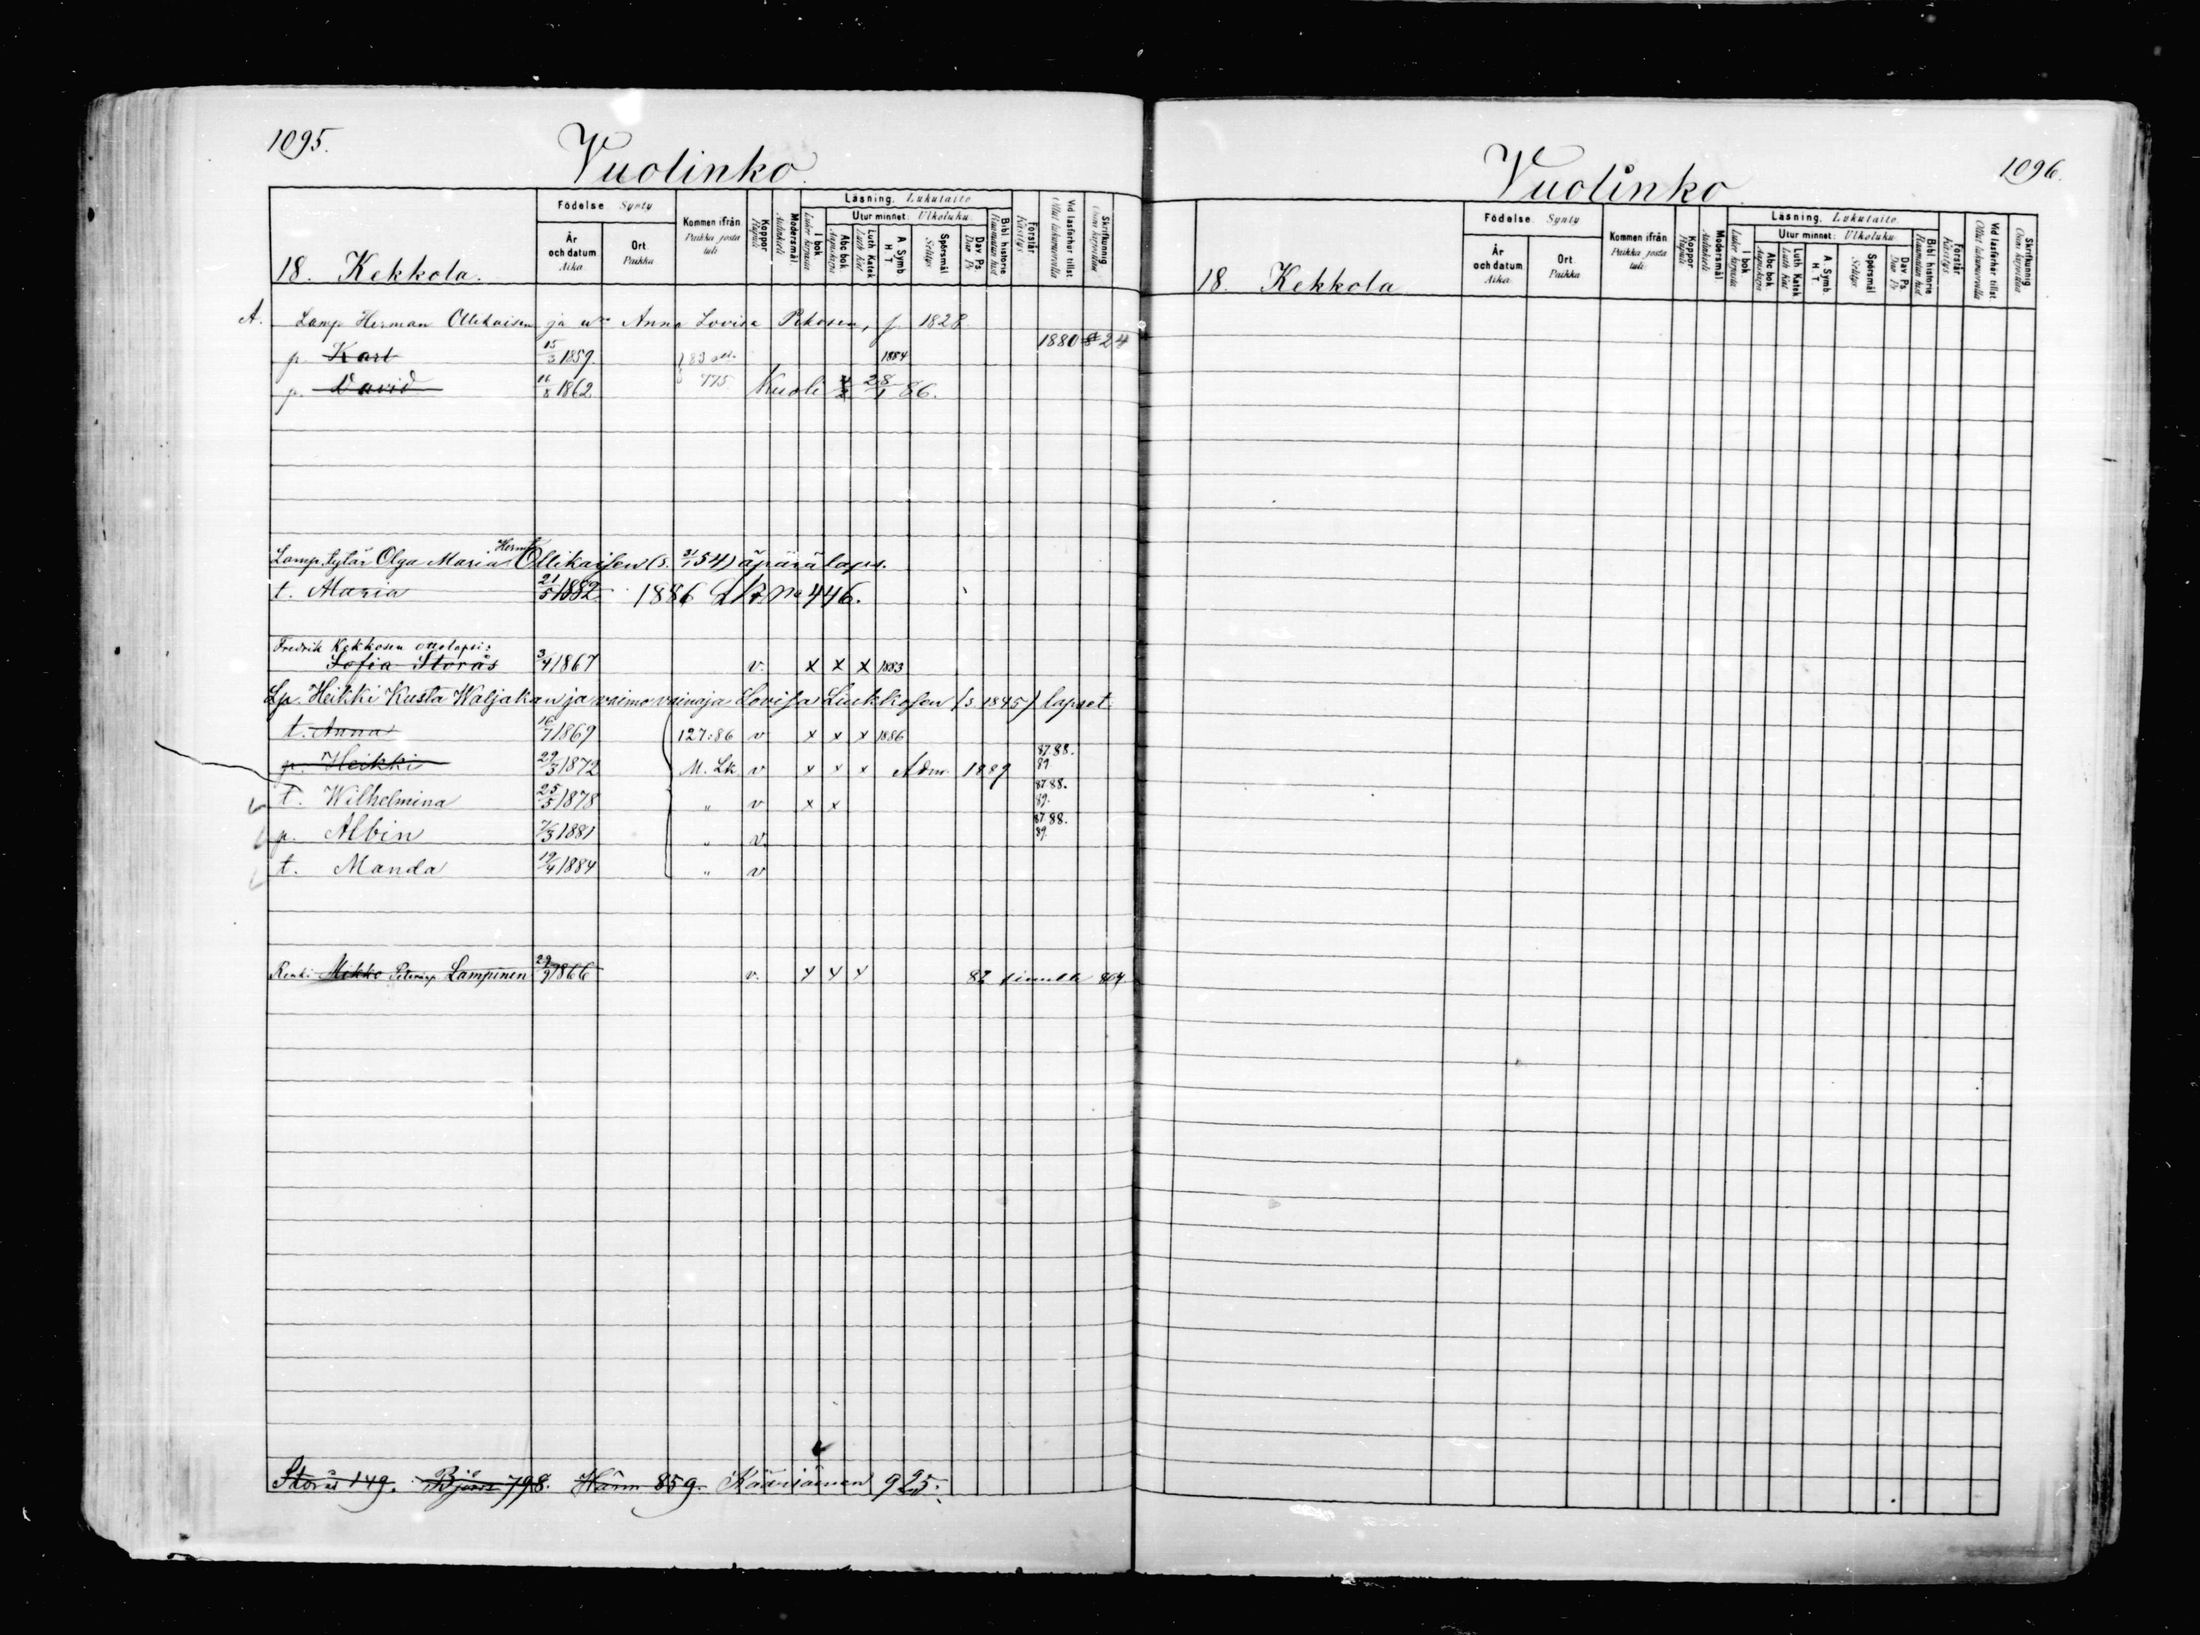 1095.
Vuolinko.
18. Kekkola.
Födelse Synty
År och datum Aika
Ort Paikka
Kommen ifrån Paikka josta tuli
Koppor Rupuli
Modersmål. Äidinkieli
Läsning. Lukutaito
I bok Lukee kirjasta
Utur minnet: Ulkoluku.
Abc bok Aapiskirja
Luth Katek Luth Kat
A. Symb. H T
Spörsmål Selitys
Dav Ps Dav Ps
Bibl. historie Raamatun hist.
Förstår Käsitys
Vid läsförhör tillst. Ollut lukukuulusteluilla
Skrifkunnig Osaa kirjoittaa
A. Lamp. Herman Ollikaisen ja wo Anna Lovisa Pekosen, f. 1828.
p. Karl 15/3 1859. 1884 1880 24
p. David 16/8 1862 775. Kuoli 28/1 86.
Lamp. tytär Olga Maria Herm. Ollikaisen (s. 31/1 54) äpärälaps.
t. Maria 21/5 1882 1886 LK No 446.
Fredrik Kekkosen ottolapsi:
Sofia Storås 3/4 1867 v. x x x 1883
Lp. Heikki Kusta Waljakan ja vaimo vainaja Lovisa Liukkosen (s. 1845) lapset
t. Anna 16/7 1869 127:86 v x x x 1886
p. Heikki 29/3 1872 M. Lk v x x x Adm. 1889 87.88. 89.
t. Wilhelmina 25/5 1878 " v x x 87.88. 89.
p. Albin 7/3 1881 " v. 87.88. 89.
t. Manda 19/4 1884 " v
Renki Mikko Peterinp. Lampinen 29/9 1866 v. x x x 82 sivulla 864.
Storås 149. Björn 798. Häm 859. Kääriäinen 925.
1096.
Vuolinko
18. Kekkola
Födelse. Synty
År och datum Aika
Ort Paikka
Kommen ifrån Paikka josta tuli
Koppor Rupuli
Modersmål. Äidinkieli
Läsning. Lukutaito.
I bok Lukee kirjasta
Utur minnet: Ulkoluku
Abc bok Aapiskirja
Luth Katek Luth Kat
A. Symb. H T
Spörsmål Selitys
Dav Ps Dav Ps
Bibl. historie Raamatun hist.
Förstår Käsitys
Vid läsförhör tillst. Ollut lukukuulusteluilla
Skrifkunnig Osaa kirjoittaa